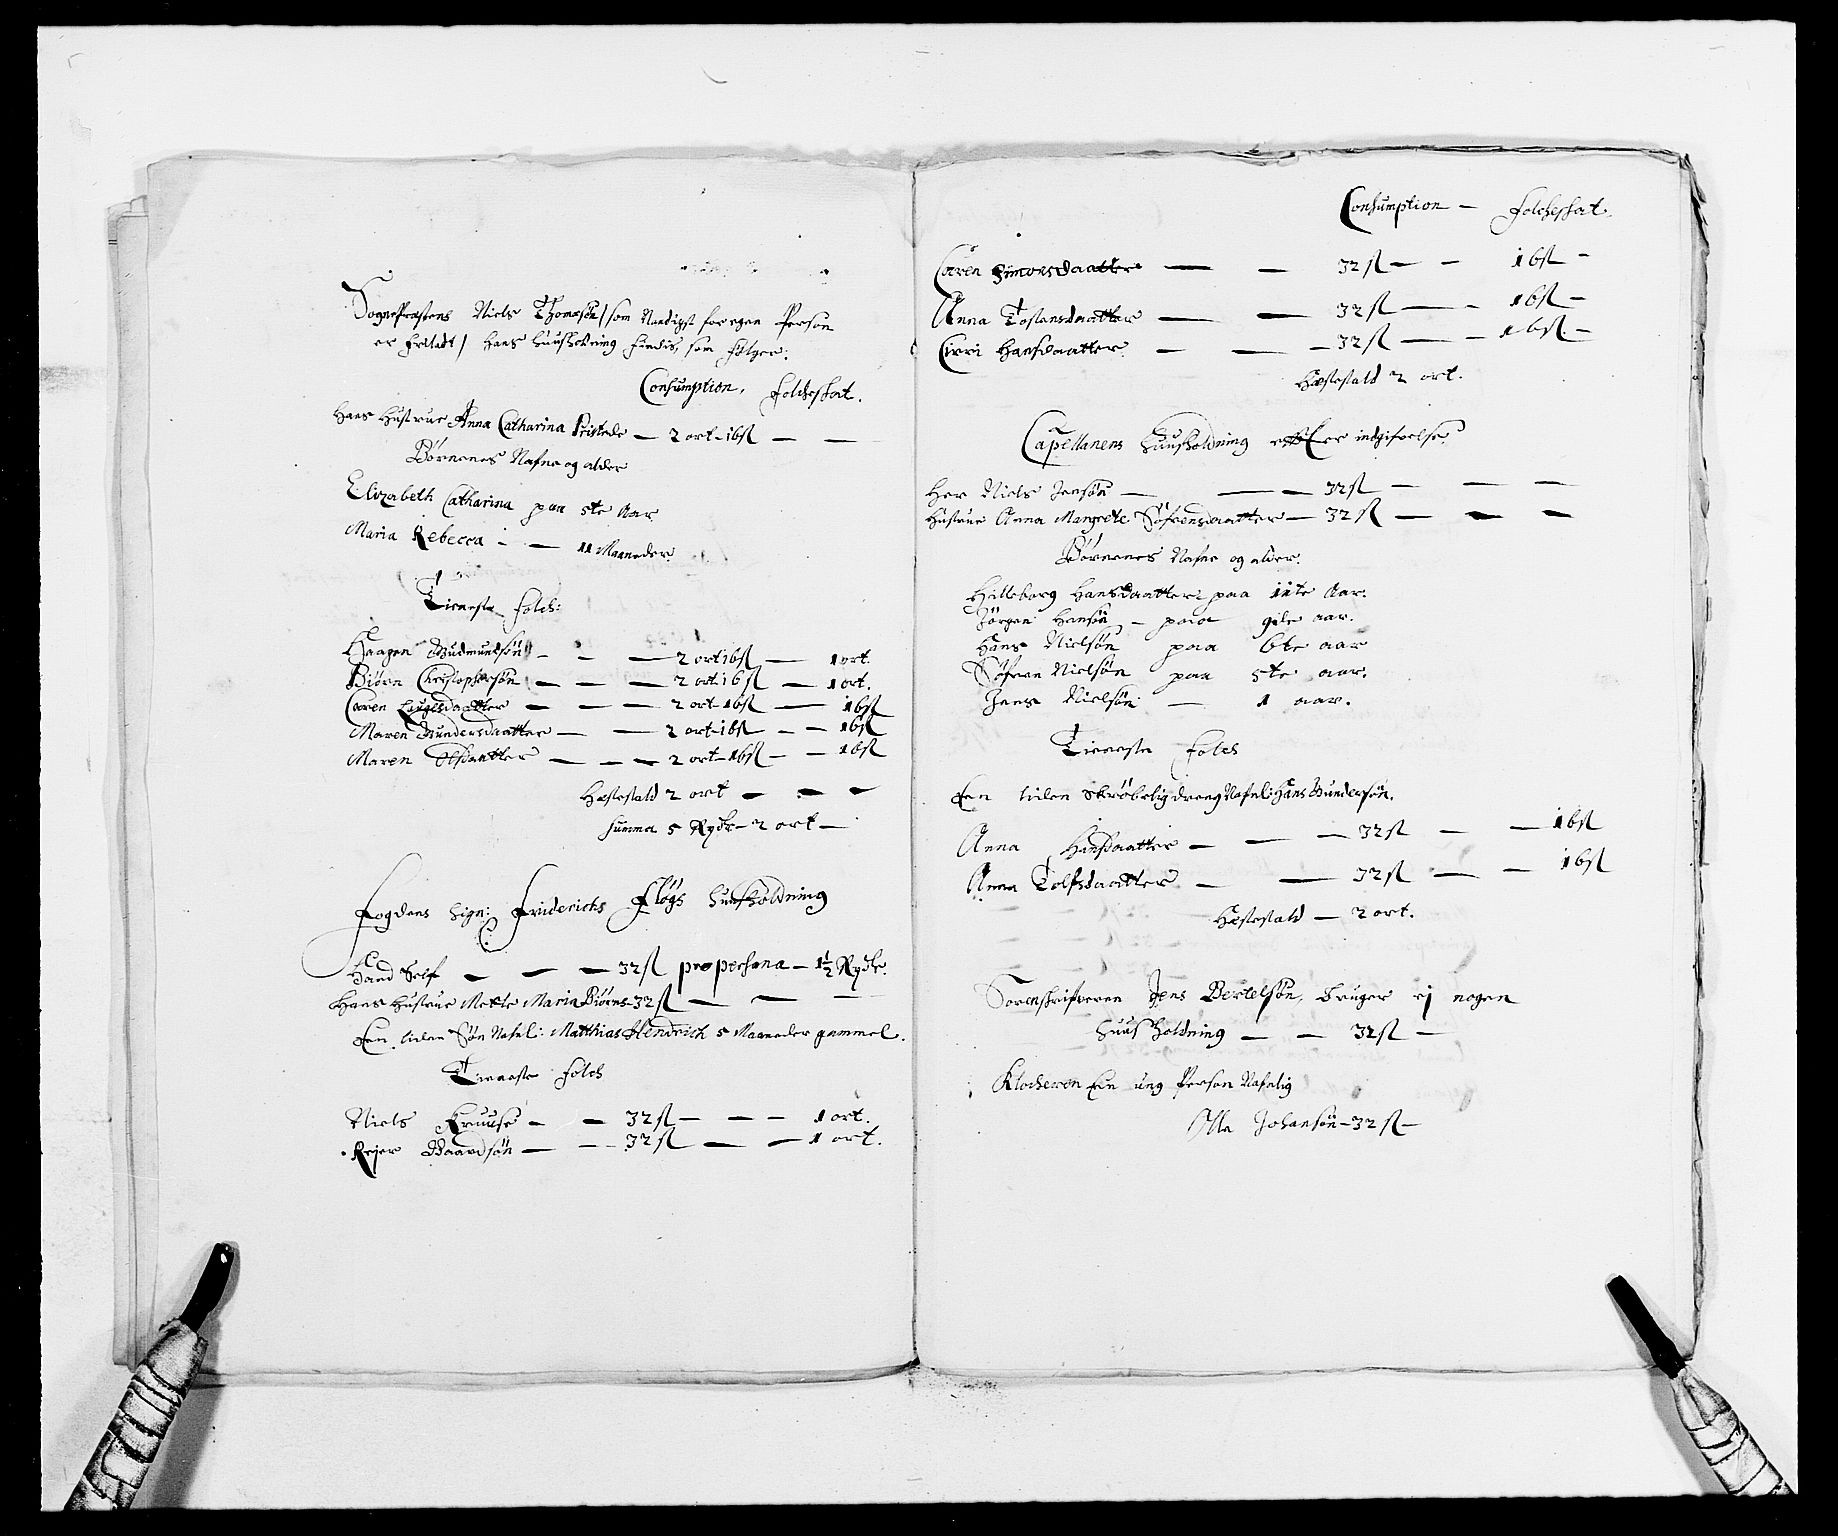 SognePræstens Niels Thomesøn / som Naadigst for egen Person
er forladt / hans huusholdning findis, som følger.
Consumption, Folcheskat.
Hans Hustrue Anna Catharina Pristede — 2 ort - 16 sk — —
Børnenes Nafne og alder
Elizabeth Catharina paa 5te Aar
Maria Rebecca — 11 Maaneder
Tieneste Folch:
Haagen Gudmundsøn — — — 2 ort 16 sk — 1 ort.
Biørn Christophersøn — — — 2 ort 16 sk — 1 ort.
Caren daatter — — — 2 ort 16 sk — 16 sk
Maren Gundersdaatter — — 2 ort 16 sk — — 16 sk
Maren Olsdaatter — — — 2 ort - 16 sk — — 16 sk
Hæstestald 2 ort — — —
Summa 5 Rydr - 2 ort —
Fogdens Sign: Friderichs Fløgs huusholdning
Hand Self — — — 32 sk pro persona — 1½ Rydr.
Hans Hustrue Mette Maria Biørns - 32 sk — — —
Een liden Søn Nafnl: Matthias Hendrich 5 Maaneder gammel.
Tieneste Folch
Niels Kruuse — — 32 sk — — — 1 ort.
Rejer Baardsøn — — 32 sk — — 1 ort.
Consumption — Folcheskat.
Caren Simonsdaatter — — 32 sk — — 16 sk —
Anna Tostensdaatter — — 32 sk — — 16 sk —
Cirri Hansdaatter — — — 32 sk — — 16 sk —
Hæstestald 2 ort.
Capellanens huusholdning effter indgifvelse
Her Niels Jensøn — — — 32 sk — — —
Hustrue Anna Margrete Søfrensdaatter — 32 sk — — —
Børnenes Nafne og alder.
Hilleborg Hansdaatter paa 11te Aar.
Jørgen Hansøn — paa 9de aar.
Hans Nielsøn paa 6te aar
Søfren Nielsøn paa 5te aar.
Jens Nielsøn — 1 aar.
Tieneste Folch
Een liden skrøbelig dreng Nafnl: Hans Gundersøn.
Anna Hansdaatter — — — 32 sk — — 16 sk
Anna Tolfsdaatter — — 32 sk — — 16 sk
Hæstestald — 2 ort.
Sorenskrifveren Jens Bertelsøn, bruger ej nogen
huusholdning — — 32 sk —
Klocheren Een ung Person Nafnlig
Olle Johansøn — 32 sk —